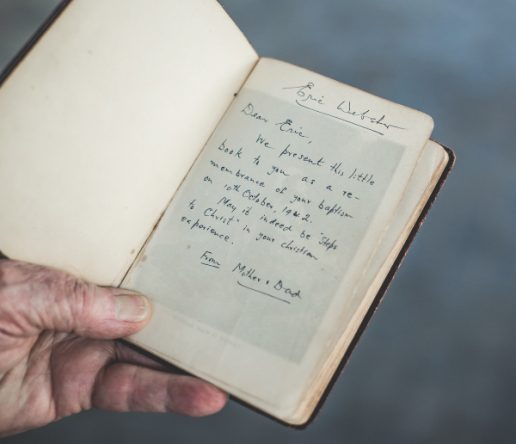 Eric Webster
Dear Eric,
We present this little
book to you as a re-
membrance of your baptism
on 10th October, 1942.
May it indeed be "Steps
to Christ" in your christian
experience.
From Mother & Dad